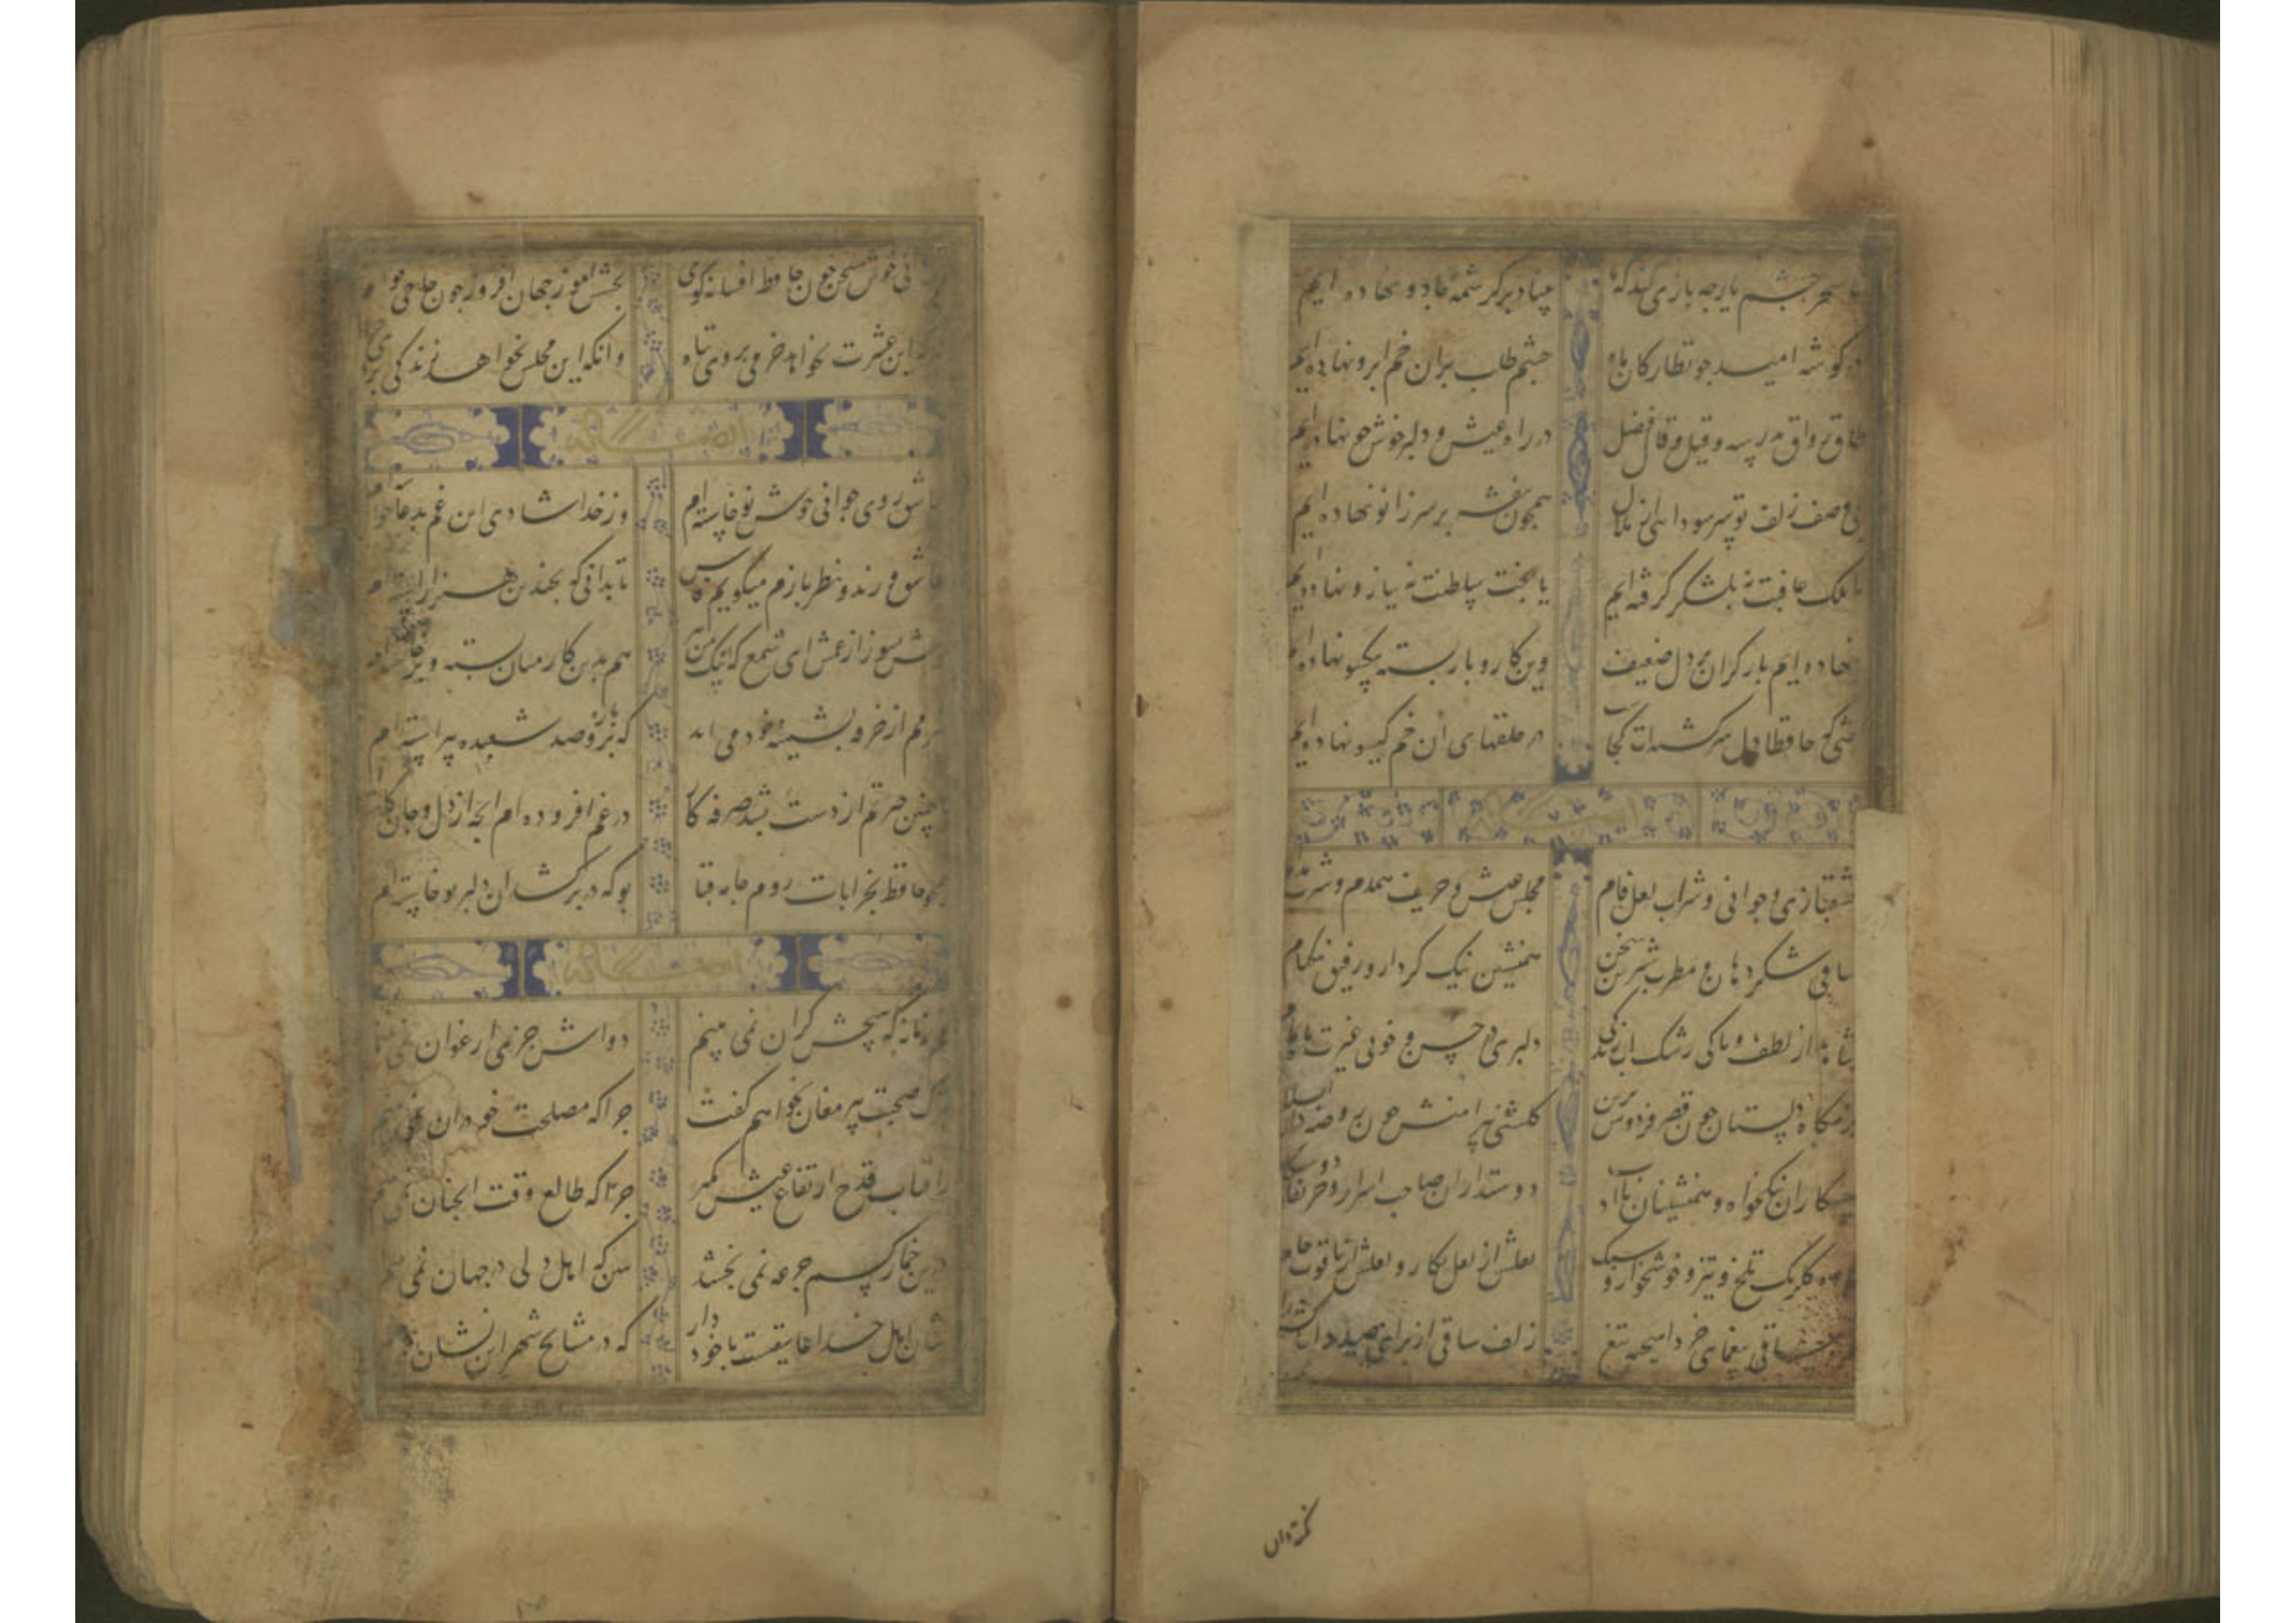 سحر چشم یار چه بازی کند که ما بنیاد بر کرشمه جادو نهاده ایم
در گوشه امید چو نظارکان ماه چشم طلب بران خم ابرو نهاده ایم
طاق و رواق مدرسه و قیل و قال فضل در راه عیش و دلبر خوش خو نهاده ایم
بی وصف زلف تو سر سودایی از ملال همچون بنفشه بر سر زانو نهاده ایم
ما ملک عافیت نه بلشکر گرفته ایم ما تخت سلطنت نه ببازو نهاده ایم
نهاده ایم بار گران بر دل ضعیف وین کار و بار بسته بیکمو نهاده ایم
کفتی که حافظا دل سرکشته ات کجاست در حلقهای ان خم گیسو نهاده ایم
عشقبازی و جوانی و شراب لعل فام مجلس عیش و حریف همدم و شرب مدام
ساقی شکر دهان و مطرب شیرین سخن همنشین نیک کردار و رفیق نیکنام
شاهد از لطف و پاکی رشک اب زندگی دلبری در حسن و خوبی غیرت ماه تمام
بزمکاه دلستان چون قصر فردوس برین گلشنی پیرامنش چون روضه دار السلام
نیکخواه و همنشینان با ادب دوستداران صاحب اسرار و حریفان دوستکام
باده گلرنگ تلخ و تیز و خوشخوار و سبک نقلش از لعل نگار و نقلش از یاقوت خام
غمزه ساقی بیغمای خرد اهیخته تیغ زلف ساقی از برای صید دل
نکته دان
خوش سخن چون حافظ افسانه گوی بخشش اموز جهان افروز چون حاجی قوام
هر که این عشرت نخواهد خرمی بر وی تباه وانکه این مجلس نخواهد زندگی بر وی حرام
ایضا له
عاشق روی جوانی خوش نوخاسته ام وز خدا شادی این غم بدعا خواسته ام
عاشق و رند و نظر بازم و میگویم فاش تا بدانی که بچندین هنر اراسته ام
خوش بسوز از غمش ای شمع که اینک من نیز هم بدین کار میان بسته و برخاسته ام
شرمم از خرقه پشمینه خود می اید که برو پاره صد شعبده پیراسته ام
با چنین حیرتم از دست بشد صرفه کار در غم افزوده ام انچه از دل و جان کاسته ام
همچو حافظ بخرابات روم جامه قبا بو که در بر کشد ان دلبر نوخاسته ام
ایضا له
غم زمانه که هیچش کران نمی بینم دواش جز می ارغوان نمی بینم
ترک صحبت پیر مغان نخواهم گفت چرا که مصلحت خود دران نمی بینم
ز افتاب قدح ارتفاع عیش بگیر چرا که طالع وقت انچنان نمی بینم
درین خمار کسم جرعه نمی بخشد ببین که اهل دلی در جهان نمی بینم
نشان اهل خدا عاشقیست با خود دار که در مشایخ شهر این نشان نمی بینم